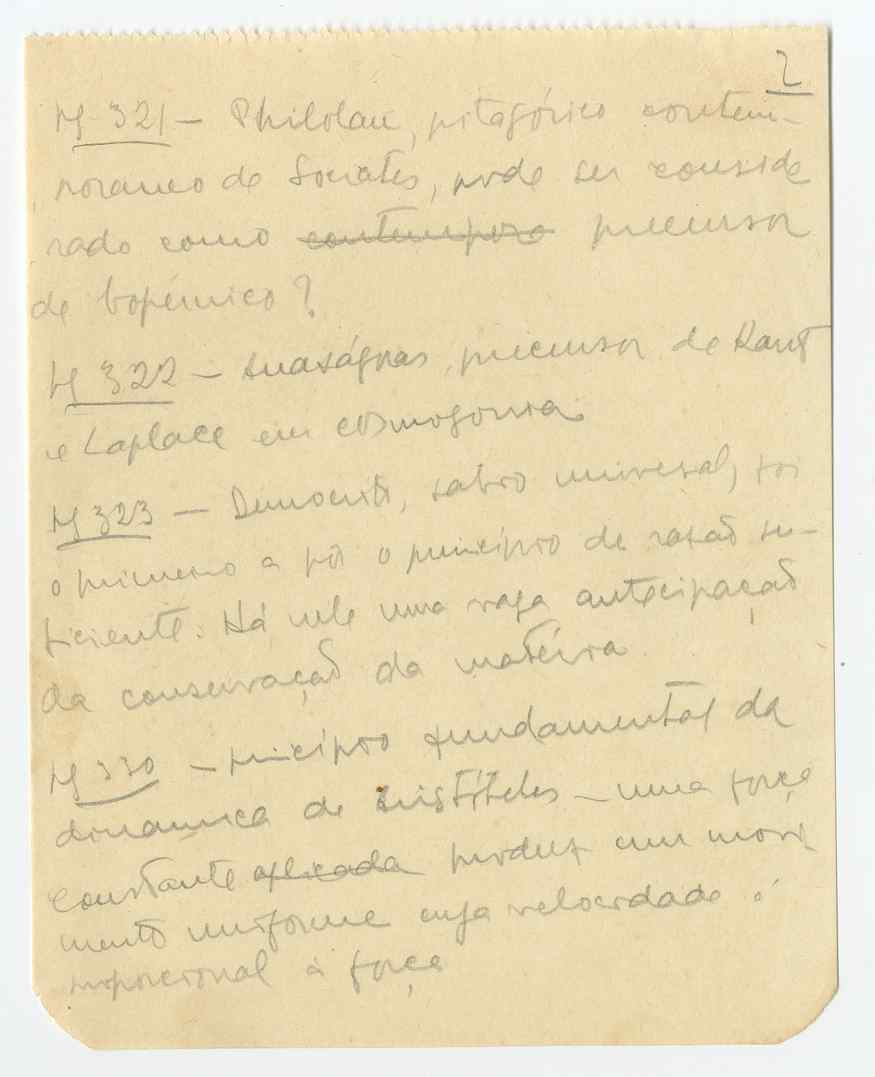 2
M 321 — Philolau, pitagórico contem-
poraneo de Socrates, pode ser conside
rado como contemporo precursor
de Copérnico?
M 322 — Anaxágoras, precursor de Kant
e Laplace em cosmogonia
M 323 — Democrito, sabio universal, foi
o primeiro a pôr o principio de razaõ su-
ficiente. Há nele uma vaga antecipaçaõ
da conservaçaõ da matéria
M 330 — principio fundamental da
dinamica de Aristóteles — uma força
constante aplicada produz um movi
mento uniforme cuja velocidade é
proporcional à força